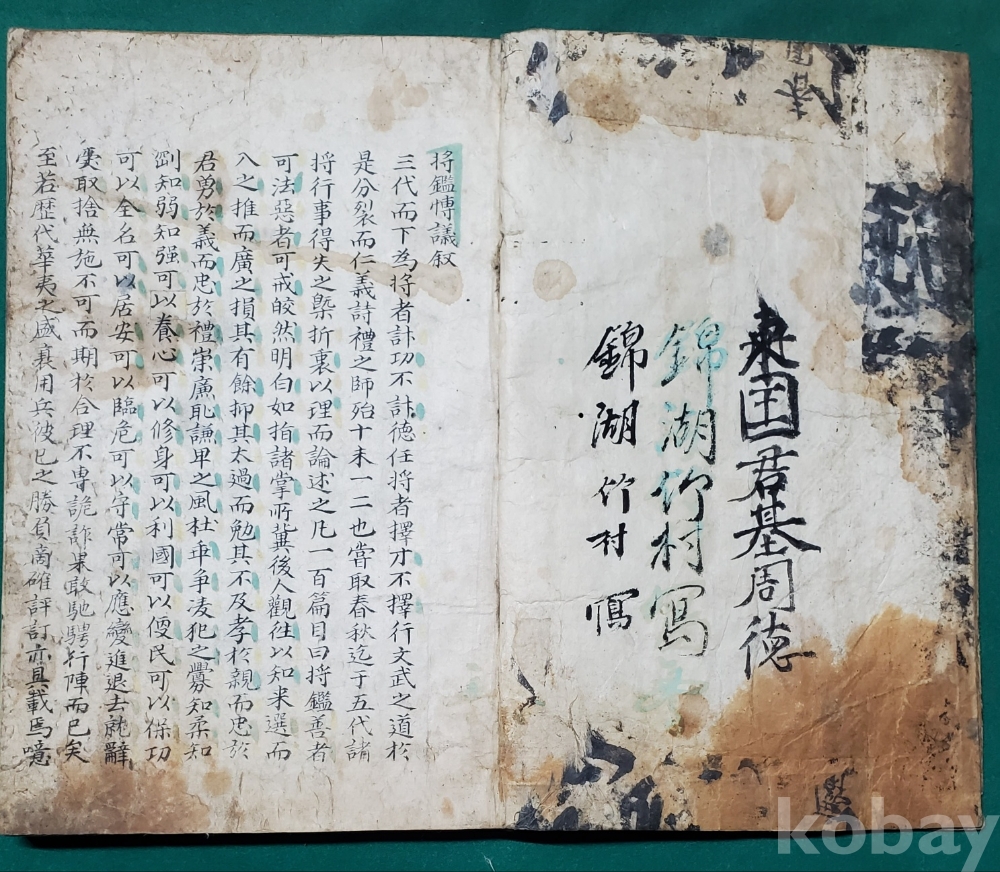 君基周德
錦湖竹村寫
錦湖竹村寫
将鑑愽議叙
三代而下為将者計功不計徳任将者擇才不擇行文武之道於
是分裂而仁義詩禮之師殆十未一二也當取春秋迄于五代諸
将行事得失之槩折衷以理而論述之凡一百篇目曰将鑑善者
可法惡者可戒皎然明白如指諸掌所冀後人觀徃以知来選而
入之推而廣之損其有餘抑其太過而勉其不及孝於親而忠於
君勇於義而忠於禮崇廉耻謙卑之風杜乖争凌犯之釁知柔知
剛知弱知强可以養心可以修身可以利國可以便民可以保功
可以全名可以居安可以臨危可以守常可以應變進退去就辭
受取捨無施不可而期於合理不專詭詐果敢馳騁行陣而已矣
至若歴代華夷之盛衰用兵彼己之勝負商確評訂亦具載焉噫
kobay